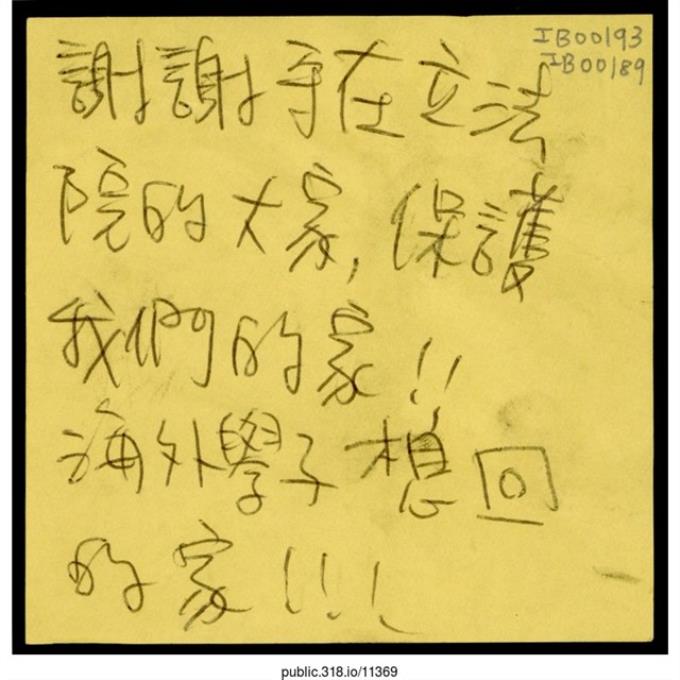 IB00193
IB00189
謝謝守在立法
院的大家,保護
我們的家!!
海外學子想回
的家!!!
public.318.io/11369